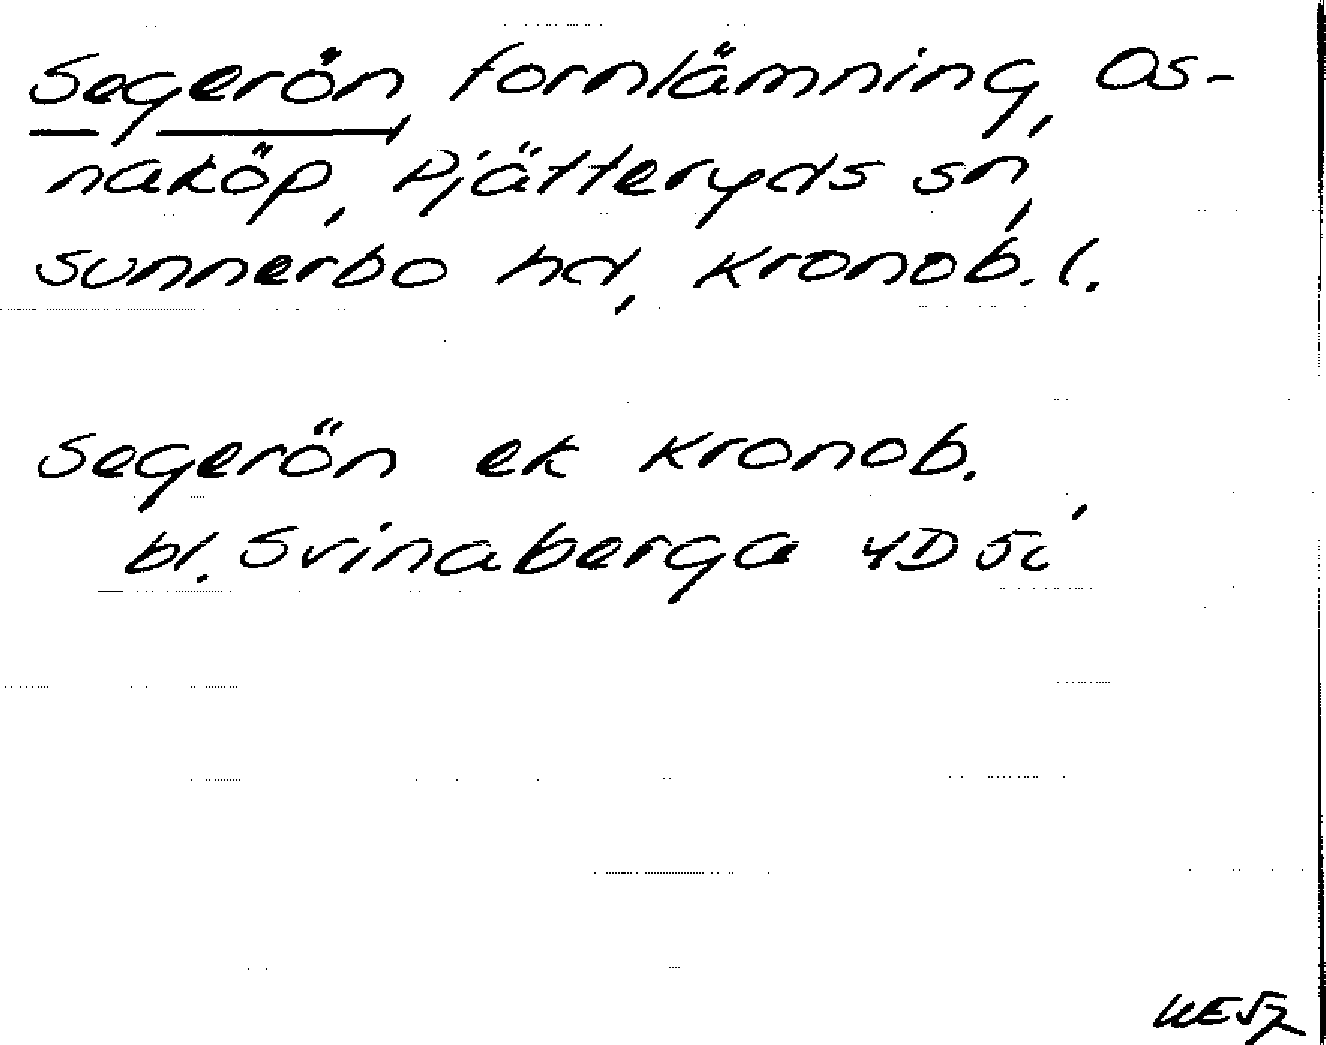 Segerön, fornlämning, Os-
naköp, Pjätteryds sn,
Sunnerbo hd, Kronob. l.
Segerön ek Kronob.
bl. Svinaberga 4D 5c